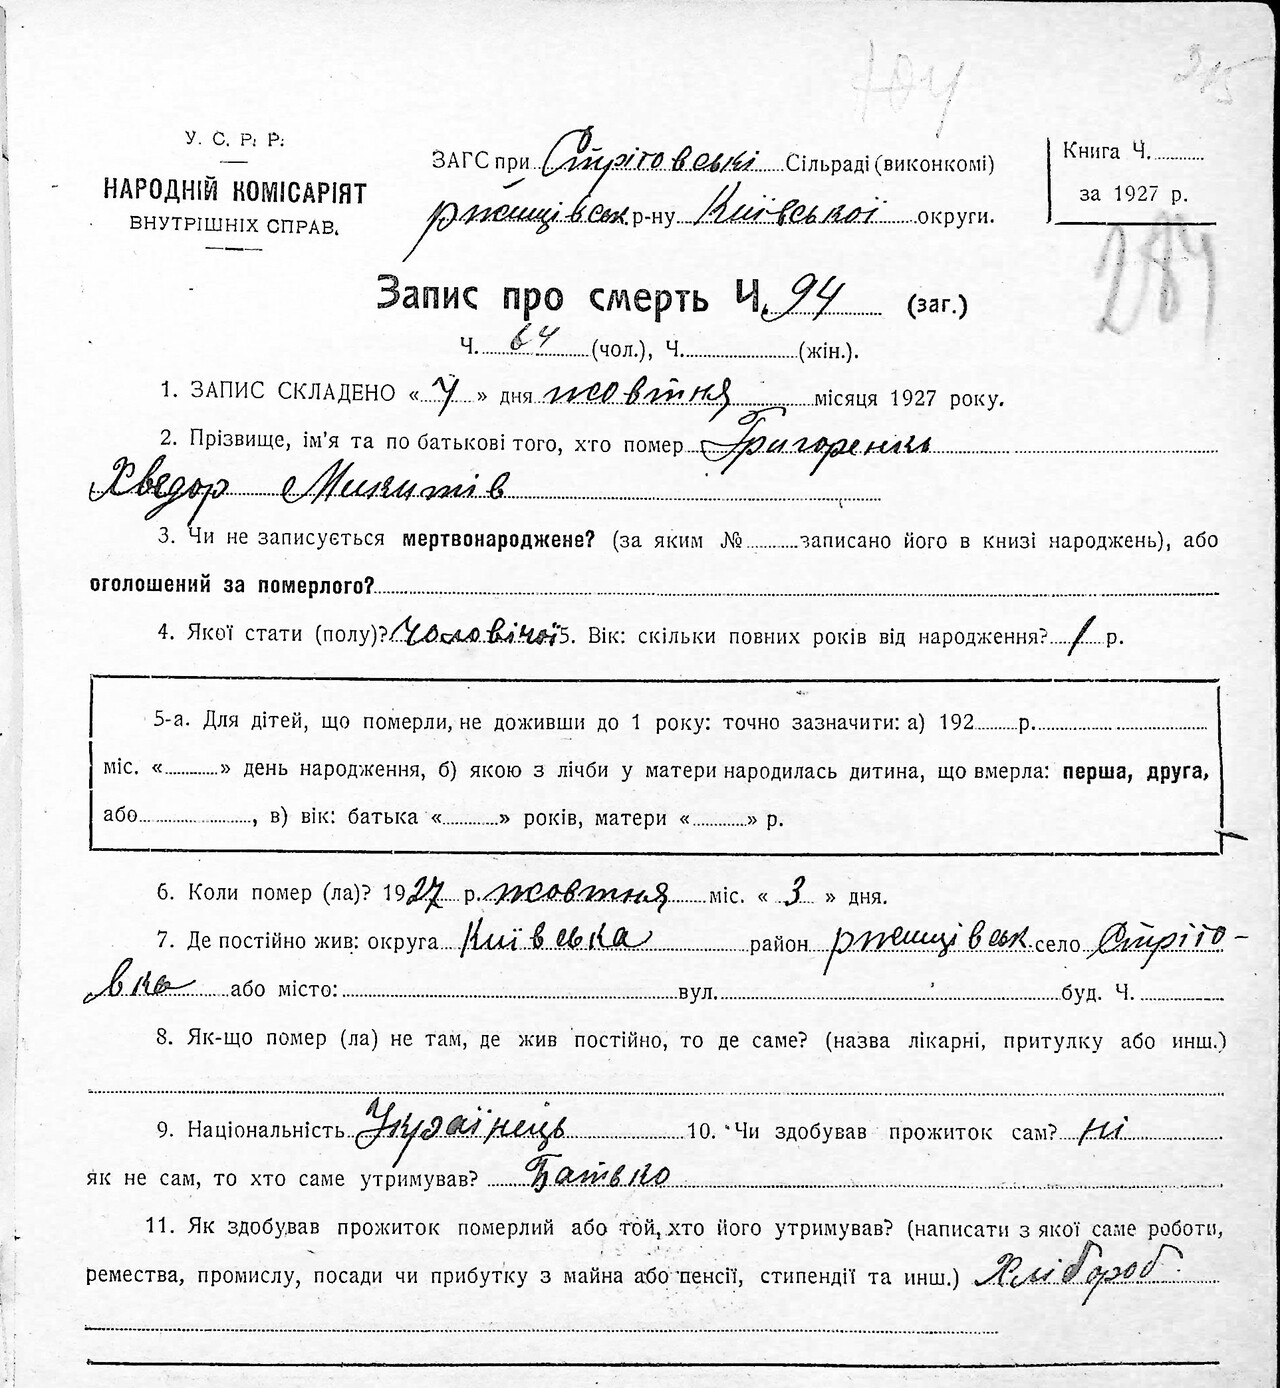 704
215
У. С. Р. Р.
НАРОДНІЙ КОМІСАРІЯТ
ВНУТРІШНІХ СПРАВ.
ЗАГС при Стрітовські Сільраді (виконкомі)
ржищівськ р-ну Київської округи.
Книга Ч.
за 1927 р.
284
Запис про смерть Ч. 94 (заг.)
Ч. 64 (чол.), Ч. (жін.).
1. ЗАПИС СКЛАДЕНО « 4 » дня жовтня місяця 1927 року.
2. Прізвище, ім'я та по батькові того, хто помер Григоренко
Хведор Микитів
3. Чи не записується мертвонароджене? (за яким № записано його в книзі народжень), або
оголошений за померлого?
4. Якої стати (полу)? Чоловічої 5. Вік: скільки повних років від народження? 1 р.
5-а. Для дітей, що померли, не доживши до 1 року: точно зазначити: а) 192 р.
міс. « » день народження, б) якою з лічби у матери народилась дитина, що вмерла: перша, друга,
або , в) вік: батька « » років, матери « » р.
6. Коли помер (ла)? 1927 р. жовтня міс. « 3 » дня.
7. Де постійно жив: округа Київська район ржищівськ село Стріто-
вка або місто: вул. буд. Ч.
8. Як-що помер (ла) не там, де жив постійно, то де саме? (назва лікарні, притулку або инш.)
9. Національність Українець 10. Чи здобував прожиток сам? ні
як не сам, то хто саме утримував? Батько
11. Як здобував прожиток померлий або той, хто його утримував? (написати з якої саме роботи,
ремества, промислу, посади чи прибутку з майна або пенсії, стипендії та инш.) Хлібороб